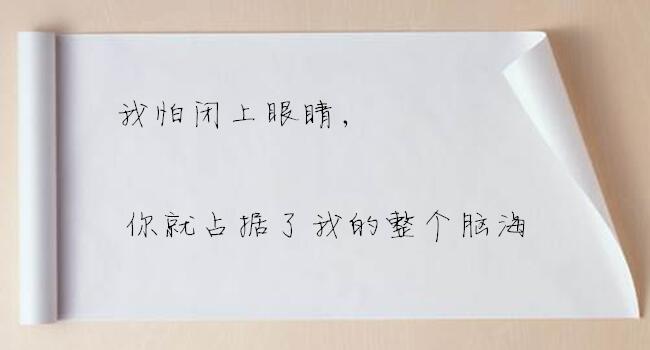 我怕闭上眼睛,
你就占据了我的整个脑海